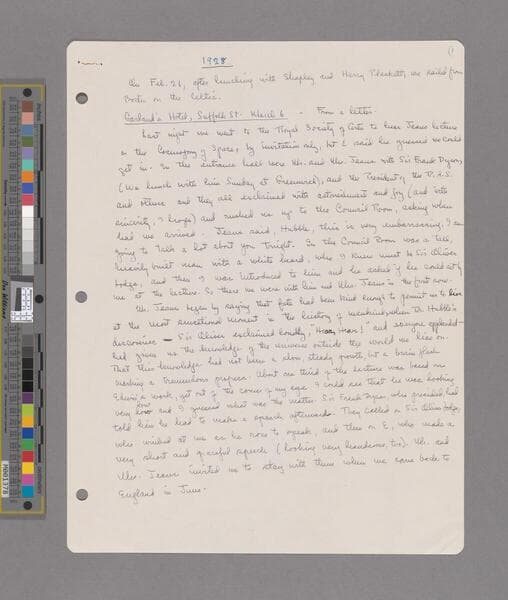 1928
On Feb. 21, after lunching with Shapley and Harry Plaskett, we sailed from
Boston on the Celtic.
Garland's Hotel, Suffolk St. March 6 - From a letter
Last night we went to the Royal Society of Arts to hear Jeans lecture
on the Cosmogony of Space, by invitation only, but E said he guessed we could
get in. In the entrance hall were Mr. and Mrs. Jeans with Sir Frank Dyson,
(we lunch with him Sunday at Greenwich), and the President of the R.A.S.
and others and they all exclaimed with astonishment and joy (and with
sincerity, I hope) and rushed us up to the Council Room, asking when
had we arrived. Jeans said, Hubble, this is very embarrassing, I am
going to talk a lot about you tonight. In the Council Room was a tall,
heavily built man with a white beard, who I knew must be Sir Oliver
Lodge, and then I was introduced to him and he asked if he could sit by
me at the lecture. So there we were with him and Mrs. Jeans in the front row.
Mr. Jeans began by saying that fate had been kind enough to permit us to live
at the most sensational moment in the history of mankind, when Dr. Hubble's
discoveries - Sir Oliver exclaimed loudly, "Hear, Hear!" and everyone applauded -
had given us the knowledge of the universe outside the world we live on.
That this knowledge had not been a slow, steady growth, but a brain flash
marking a tremendous progress. About one third of the lecture was based on
Edwin's work, yet out of the corner of my eye I could see that he was looking
very low and I guessed what was the matter. Sir Frank Dyson, who presided, had
told him he had to make a speech afterwards. They called on Sir Oliver Lodge,
who winked at me as he rose to speak, and then on E, who made a
very short and graceful speech (looking very handsome, too). Mr. and
Mrs. Jeans invited me to stay with them when we came back to
England in June.
MHN01378